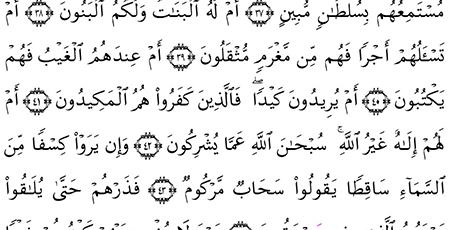 مُسْتَمِعُهُم بِسُلْطَـٰنٍ مُّبِينٍ ﴿٣٧﴾ أَمْ لَهُ ٱلْبَنَـٰتُ وَلَكُمُ ٱلْبَنُونَ ﴿٣٨﴾ أَمْ
تَسْـَٔلُهُمْ أَجْرًا فَهُم مِّن مَّغْرَمٍ مُّثْقَلُونَ ﴿٣٩﴾ أَمْ عِندَهُمُ ٱلْغَيْبُ فَهُمْ
يَكْتُبُونَ ﴿٤٠﴾ أَمْ يُرِيدُونَ كَيْدًا ۖ فَٱلَّذِينَ كَفَرُوا۟ هُمُ ٱلْمَكِيدُونَ ﴿٤١﴾ أَمْ
لَهُمْ إِلَـٰهٌ غَيْرُ ٱللَّهِ ۚ سُبْحَـٰنَ ٱللَّهِ عَمَّا يُشْرِكُونَ ﴿٤٢﴾ وَإِن يَرَوْا۟ كِسْفًا مِّنَ
ٱلسَّمَآءِ سَاقِطًا يَقُولُوا۟ سَحَابٌ مَّرْكُومٌ ﴿٤٣﴾ فَذَرْهُمْ حَتَّىٰ يُلَـٰقُوا۟